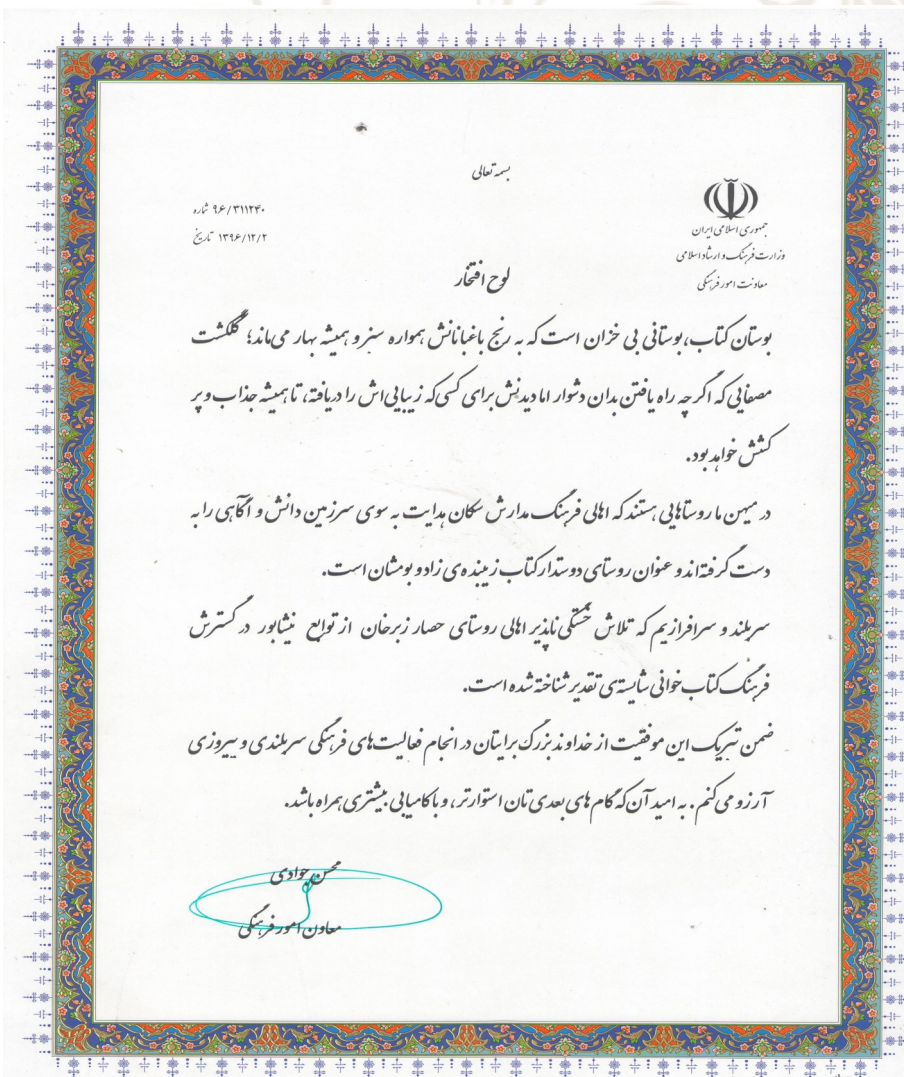 بسمه تعالی
جمهوری اسلامی ایران
وزارت فرهنگ و ارشاد اسلامی
معاونت امور فرهنگی
۹۶/۳۱۱۲۴۰ شماره
۱۳۹۶/۱۲/۲ تاریخ
لوح افتخار
بوستان کتاب، بوستانی بی خزان است که به رنج باغبانانش همواره سبز و همیشه بهار می‌ماند؛ گلگشت
مصفایی که اگر چه راه یافتن بدان دشوار اما دیدنش برای کسی که زیبایی اش را دریافته، تا همیشه جذاب و پر
کشش خواهد بود.
در میهن ما روستاهایی هستند که اهالی فرهنگ مدارش سکان هدایت به سوی سرزمین دانش و آگاهی را به
دست گرفته‌اند و عنوان روستای دوستدار کتاب زیبنده ی زاد و بومشان است.
سربلند و سرافرازیم که تلاش خستگی ناپذیر اهالی روستای حصار زبرخان از توابع نیشابور در گسترش
فرهنگ کتاب خوانی شایسته‌ی تقدیر شناخته شده است.
ضمن تبریک این موفقیت از خداوند بزرگ برایتان در انجام فعالیت های فرهنگی سربلندی و پیروزی
آرزو می کنم. به امید آن که گام های بعدی تان استوارتر، و با کامیابی بیشتری همراه باشد.
محسن جوادی
معاون امور فرهنگی